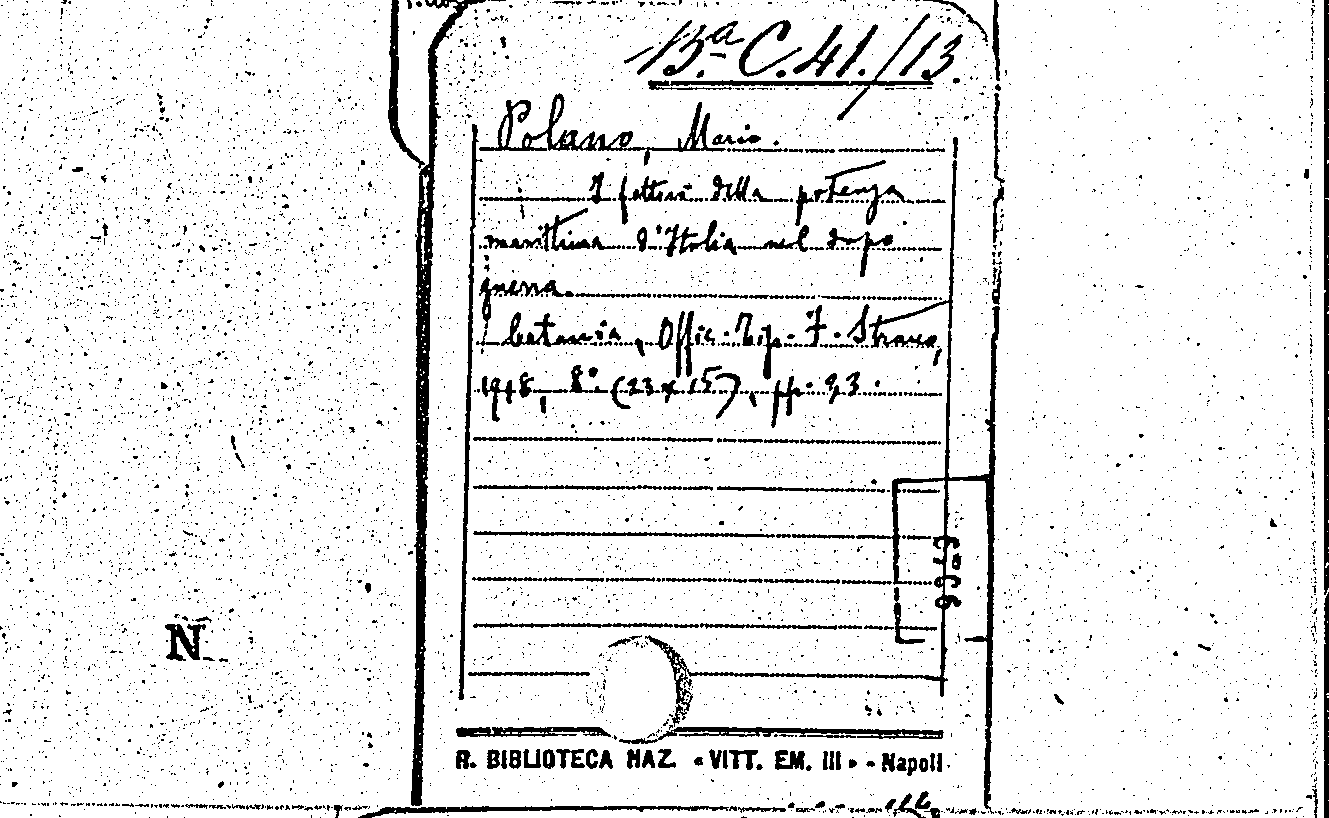 13.a C.41./13.
Polano, Mario.
I fattori della potenza
marittima d'Italia nel dopo
guerra.
Catania, Offic. Tip. F. Strano,
1918, 8°. (23 x 15), pp. 93.
R. BIBLIOTECA NAZ. « VITT. EM. III » - Napoli
N